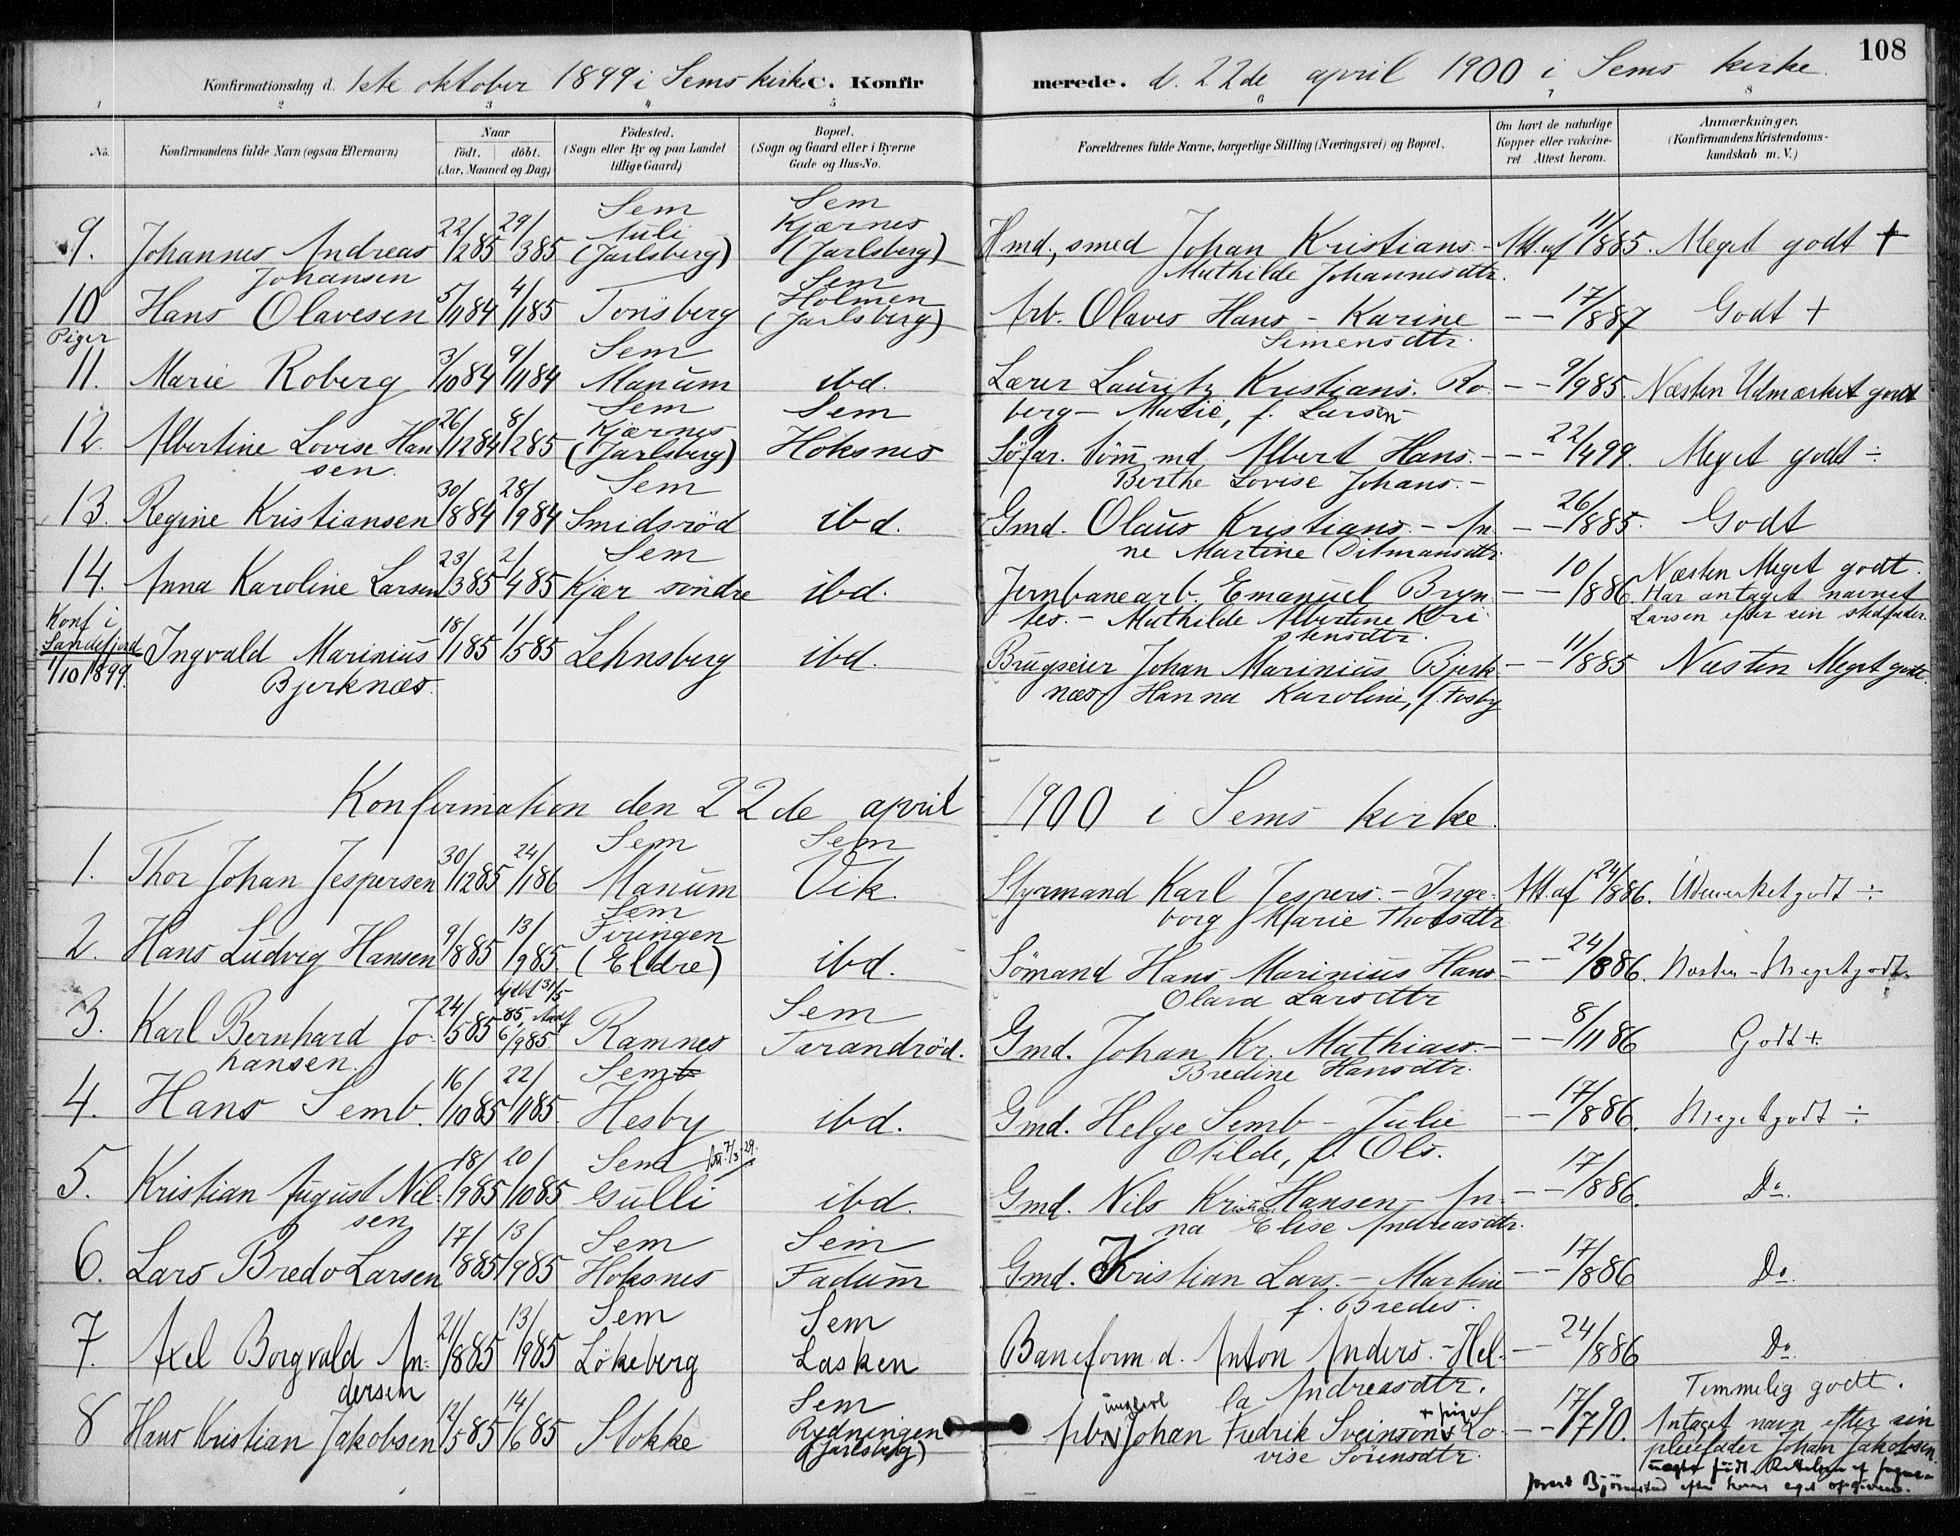 108
Konfirmationsdag d. 1ste oktober 1899 i Sems kirke C. Konfirmerede. d. 22de april 1900 i Sems kirke.
1 2 3 4 5 6 7 8
No. Konfirmandens fulde Navn (ogsaa Efternavn) Naar födt. döbt. (Aar, Maaned og Dag) Födested. (Sogn eller By og paa Landet tillige Gaard) Bopæl. (Sogn og Gaard eller i Byerne Gade og Hus-No. Forældrenes fulde Navne, borgerlige Stilling (Næringsvei) og Bopæl. Om havt de naturlige Kopper eller vakcineret. Attest herom. Anmærkninger. (Konfirmandens Kristendomskundskab m. V.)
9. Johannes Andreas Johansen 22/285 29/385 Sem Auli (Jarlsberg) Sem Kjærnes (Jarlsberg) Hmd, smed Johan Kristians.- Mathilde Johannesdtr. Att. af 11/885. Meget godt +
10 Hans Olavesen 5/1184 4/185 Tönsberg Sem Holmen (Jarlsberg) Arb. Olaves Hans - Karine Simensdtr. - - 17/887 Godt +
Piger
11. Marie Roberg 3/1084 9/1184 Sem Manum ibd. Lærer Lauritz Kristians. Roberg - Marie, f. Larsen - - 9/985. Næsten Udmærket godt
12. Albertine Lovise Hansen. 26/1284 8/285 Sem Kjærnes (Jarlsberg) Sem Hoksnes Söfar. tömmd Albert Hans.- Berthe Lovise Johans.- - - 22/499. Meget godt ÷
13. Regine Kristiansen 30/884 28/984 Sem Smidsröd ibd. Gmd. Olaus Kristians. - Anne Martine Ditmansdtr. - - 26/885. Godt
14. Anna Karoline Larsen 23/385 2/485 Sem Kjær söndre ibd. Jernbanearb. Emanuel Bryntes. - Mathilde Albertine Kristensdtr. - - 10/886. Næsten Meget godt. Har antaget navnet Larsen efter sin stedfader.
Konf i Sandefjord 1/10 1899. Ingvald Marinius Bjerknæs. 18/185 1/585 Lehnsberg ibd. Brugseier Johan Marinius Bjerknæs, Hanna Karoline, f. Fosby - - 11/885 Næsten Meget godt.
Konfirmation den 22de april 1900 i Sems kirke.
1. Thor Johan Jespersen 30/1285 24/186 Sem Manum Sem Vik Styrmand Karl Jespers. - Ingeborg Marie Thorsdtr. Att. af 24/886. Udmærket godt ÷
2. Hans Ludvig Hansen 9/885 13/985. Sem Firingen (Eldre) ibd. Sömand Hans Marinius Hans- Olava Larsdtr - - 24/886. Næsten - Meget godt.
3. Karl Bernhard Johansen. 24/585 hjdbt 31/5 85, stadf 6/985 Ramnes Sem Tarandröd. Gmd. Johan Kr. Mathias.- Bredine Hansdtr. - - 8/1186 Godt +
4. Hans Semb. 16/1085 22/1185. Semb Hesby ibd. Gmd. Helge Semb - Julie Otilde, f. Ols. - - 17/886. Meget godt ÷
5. Kristian August Nilsen 18/985 20/1085 Sem Gulli 7/3 29. ibd. Gmd. Nils Kristian Hansen - Anna Elise Andreasdtr. - - 17/886. Do.
6. Lars Bredo Larsen 17/885 13/985 Sem Hoksnes Sem Fadum Gmd. Kristian Lars. - Martine f. Bredes. - - 17/886 Do.
7. Axel Borgvald Andersen 21/885 13/985 Sem Lökeberg Sem Lasken Baneform d. Anton Anders. - Hella Andreasdtr. - - 24/886 Do.
8 Hans Kristian Jakobsen 12/585 14/685 Stokke Sem Rydningen (Jarlsberg) Arb. ungkarl Johan Fredrik Sveinson + pige Lovise Sörensdtr. - - 17/790. Temmelig godt. Antaget navn efter sin pleiefader Johan Jakobsen.
uægte födt.
Björnstad efter hans eget opgivende.